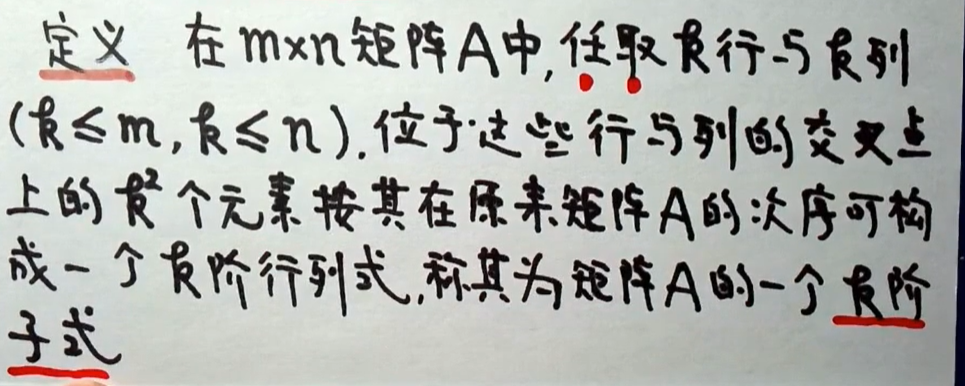 定义 在m×n矩阵A中,任取k行与k列
(k≤m,k≤n).位于这些行与列的交叉点
上的k²个元素按其在原来矩阵A的次序可构
成一个k阶行列式,称其为矩阵A的一个k阶
子式